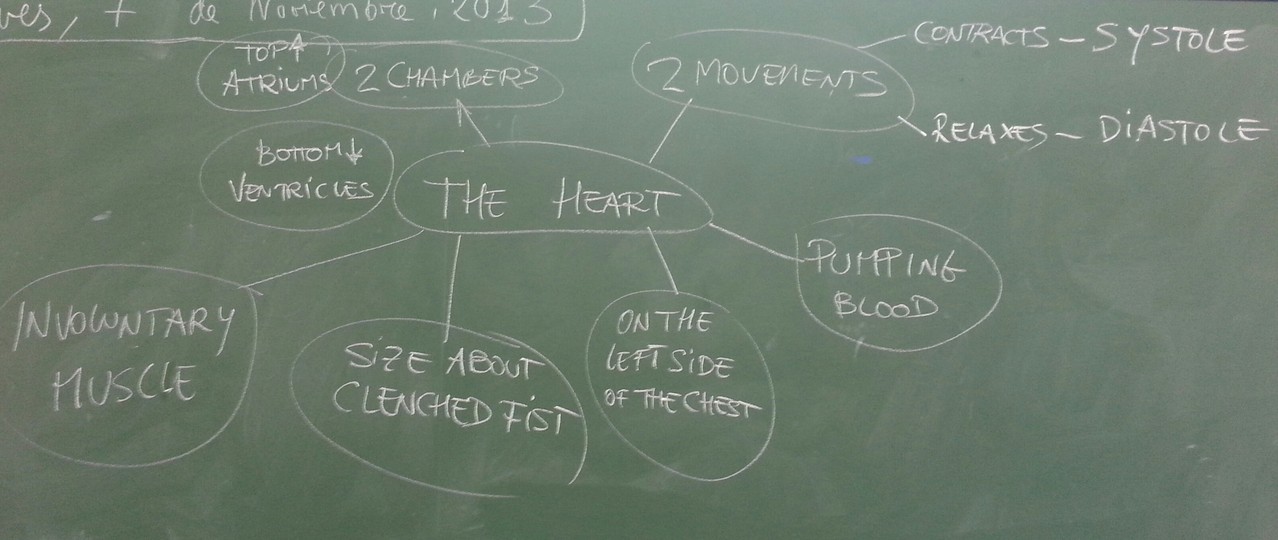 ves, 7 de Noviembre, 2013
TOP↑
ATRIUMS
2 CHAMBERS
2 MOVEMENTS
CONTRACTS - SYSTOLE
RELAXES - DIASTOLE
BOTTOM↓
VENTRICLES
THE HEART
PUMPING
BLOOD
INVOLUNTARY
MUSCLE
SIZE ABOUT
CLENCHED FIST
ON THE
LEFT SIDE
OF THE CHEST